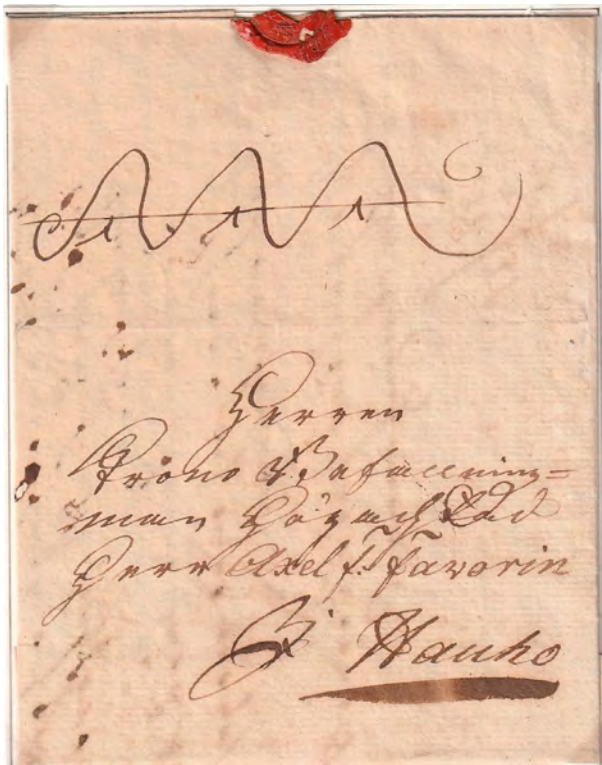 Herren
Krono Befallning=
man Högacht. Ädl
Herr Axel f. Favorin
Hauho